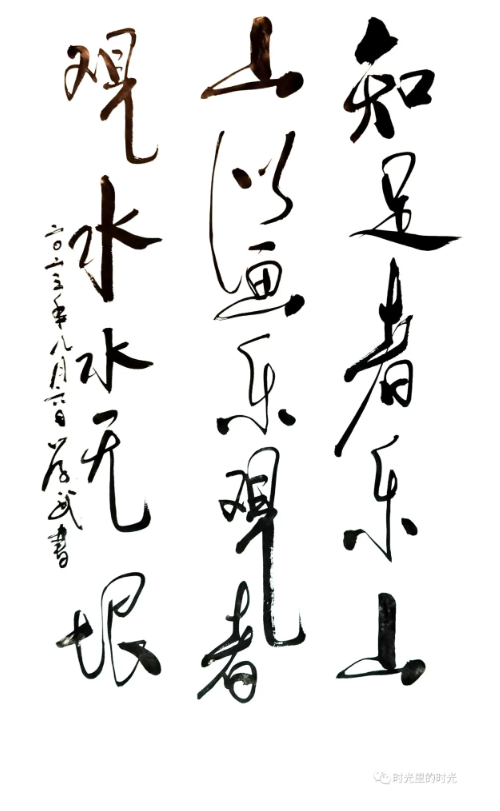 知足者乐山
山似画乐观者
观水水无垠
二〇二三年八月六日学武书
时光里的时光